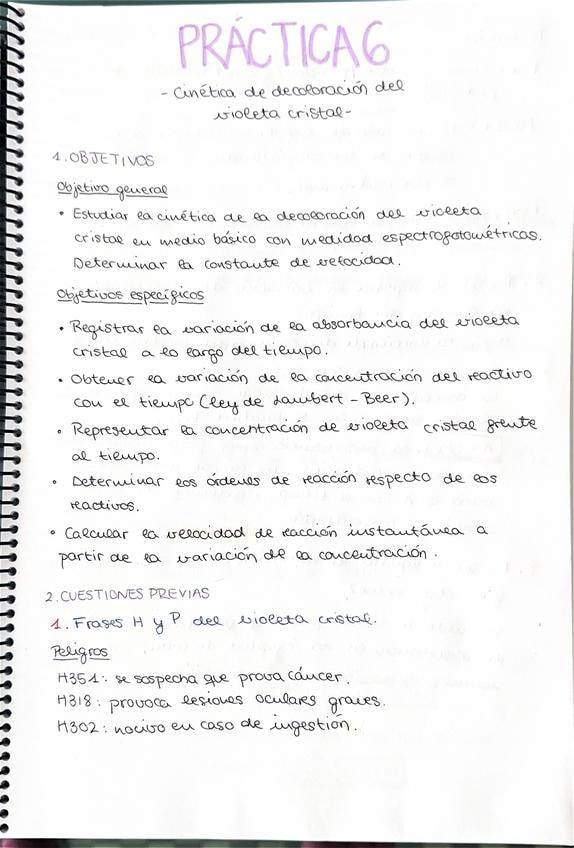 PRÁCTICA 6
- Cinética de decoloración del
violeta cristal-
1. OBJETIVOS
Objetivo general
• Estudiar la cinética de la decoloración del violeta
cristal en medio básico con medidad espectrofotométricas.
Determinar la constante de velocidad.
Objetivos específicos
• Registrar la variación de la absorbancia del violeta
cristal a lo largo del tiempo.
• Obtener la variación de la concentración del reactivo
con el tiempo (ley de Lambert-Beer).
• Representar la concentración de violeta cristal frente
al tiempo.
• Determinar los órdenes de reacción respecto de los
reactivos.
• Calcular la velocidad de racción instantánea a
partir de la variación de la concentración.
2. CUESTIONES PREVIAS
1. Frases H y P del violeta cristal.
Peligros
H351: se sospecha que prova cáncer.
H318: provoca lesiones oculares graves.
H302: nocivo en caso de ingestión.